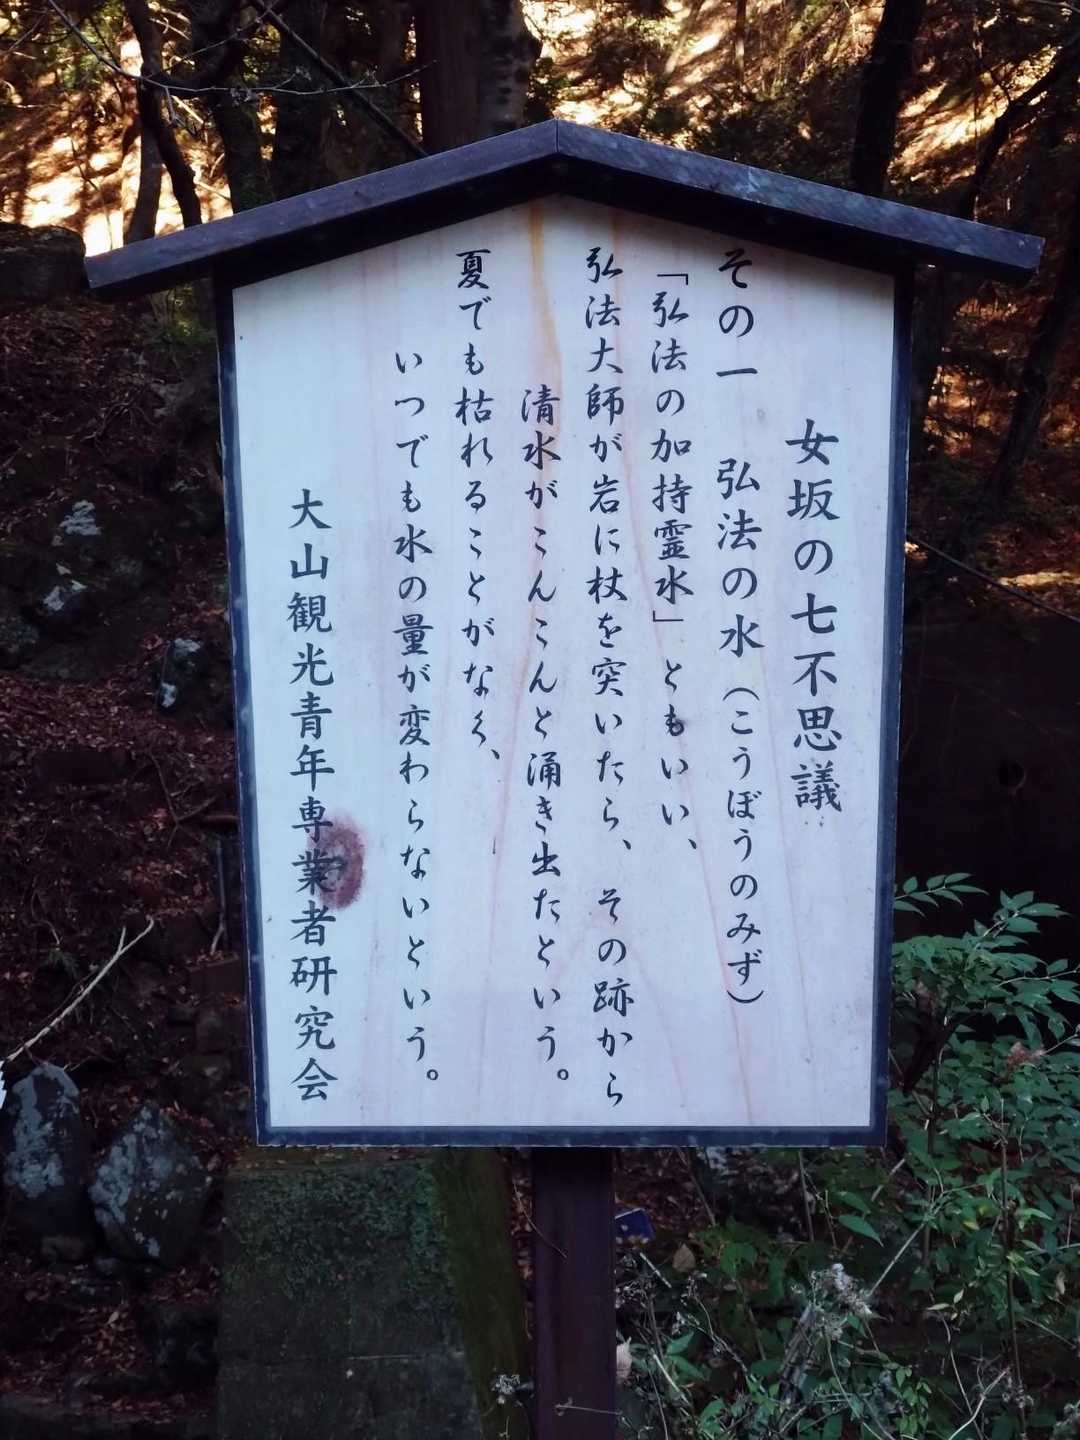 女坂の七不思議
その一　弘法の水（こうぼうのみず）
「弘法の加持霊水」ともいい、
弘法大師が岩に杖を突いたら、その跡から
清水がこんこんと涌き出たという。
夏でも枯れることがなく、
いつでも水の量が変わらないという。
大山観光青年専業者研究会